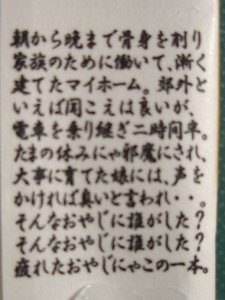 朝から晩まで骨身を削り
家族のために働いて、漸く
建てたマイホーム。郊外と
いえば聞こえは良いが、
電車を乗り継ぎ二時間半。
たまの休みにゃ邪魔にされ、
大事に育てた娘には、声を
かければ臭いと言われ・・。
そんなおやじに誰がした？
そんなおやじに誰がした？
疲れたおやじにゃこの一本。